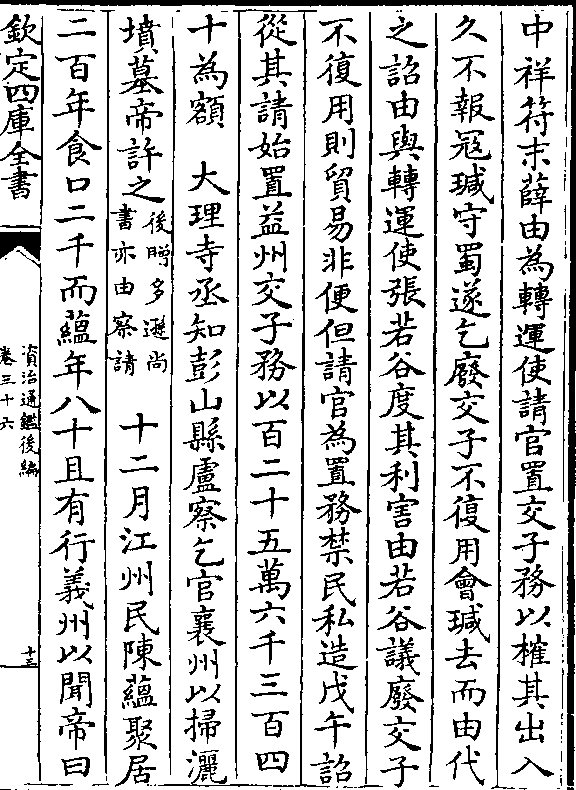 中祥符末薛田為轉運使請官置交子務以榷其出入
久不報冦瑊守蜀遂乞廢交子不復用會瑊去而田代
之詔田與轉運使張若谷度其利害田若谷議廢交子
不復用則貿易非便但請官為置務禁民私造戊午詔
從其請始置益州交子務以百二十五萬六千三百四
十為額　大理寺丞知彭山縣盧察乞官襄州以掃灑
墳墓帝許之後贈多遜尚
書亦由察請　十二月江州民陳藴聚居
二百年食口二千而藴年八十且有行義州以聞帝曰
欽定四庫全書
資治通鑑後編
卷三十六
十三